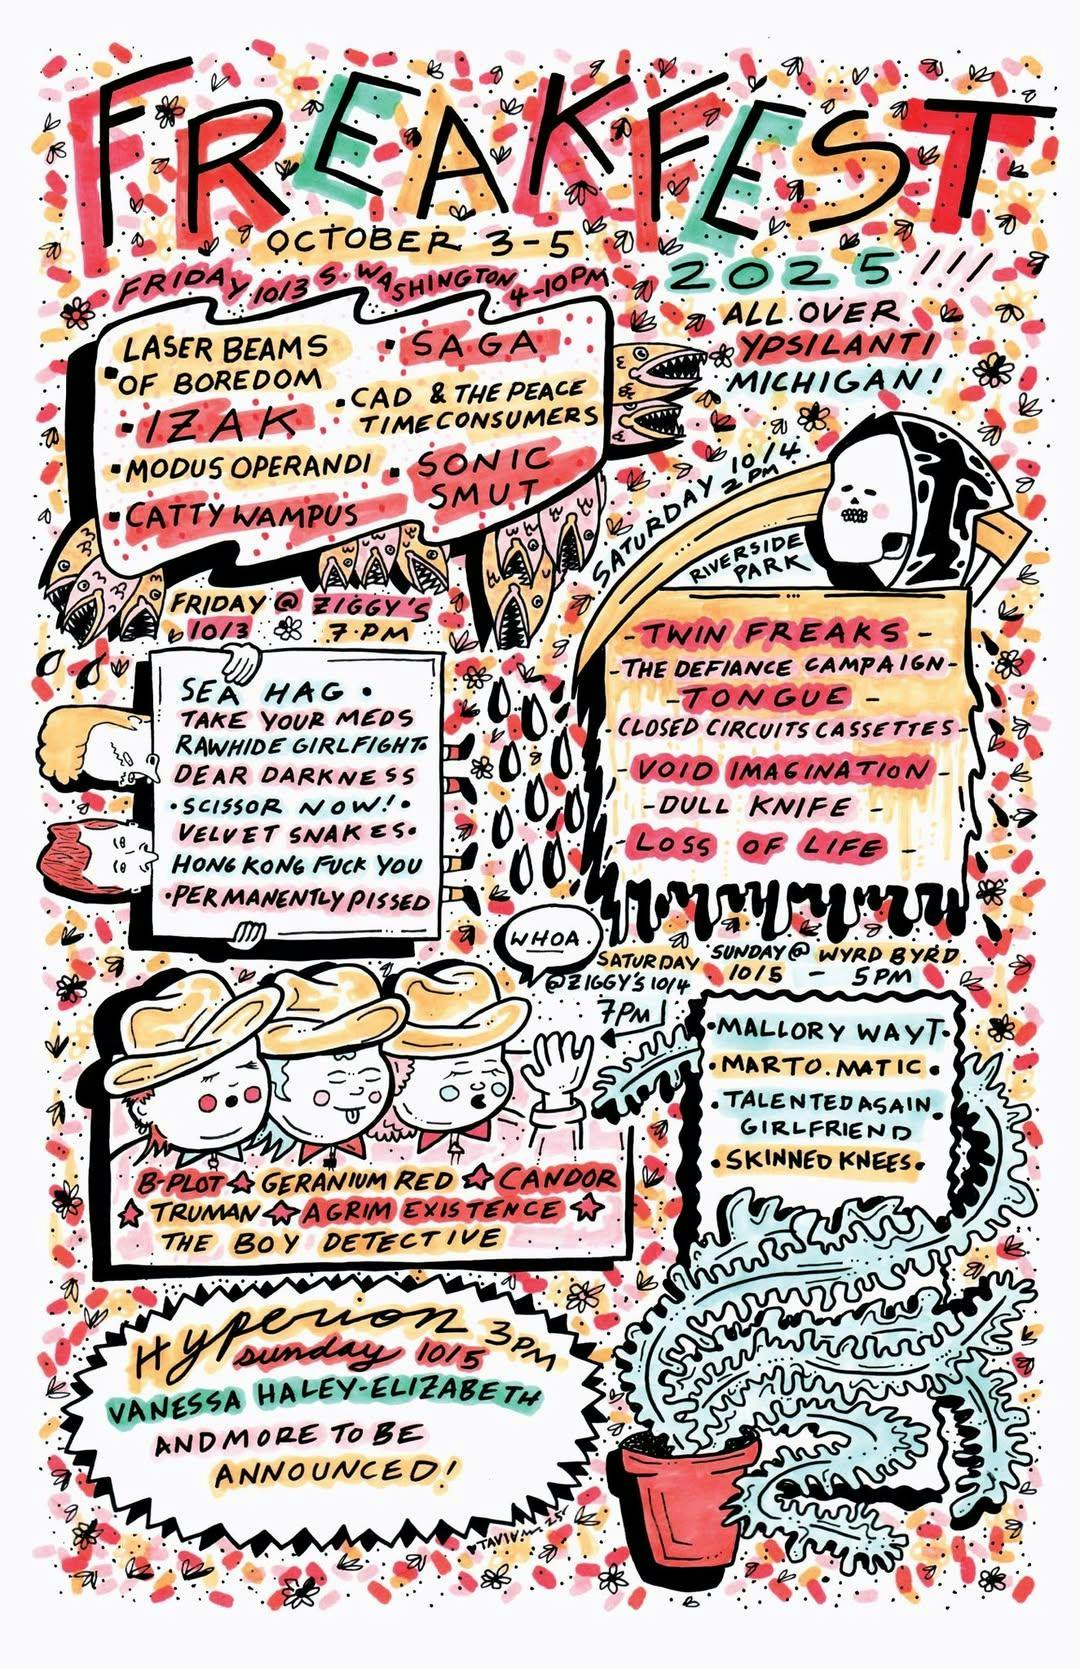 FREAKFEST
OCTOBER 3-5
2025!!!
ALL OVER
YPSILANTI
MICHIGAN!
FRIDAY 10/3 S. WASHINGTON 4-10PM
LASER BEAMS
OF BOREDOM
IZAK
MODUS OPERANDI
CATTY WAMPUS
SAGA
CAD & THE PEACE
TIME CONSUMERS
SONIC
SMUT
SATURDAY 10/4
2PM
RIVERSIDE
PARK
-TWIN FREAKS-
-THE DEFIANCE CAMPAIGN-
-TONGUE-
CLOSED CIRCUITS CASSETTES-
-VOID IMAGINATION-
-DULL KNIFE-
-LOSS OF LIFE-
FRIDAY @ ZIGGY'S
10/3 7·PM
SEA HAG •
TAKE YOUR MEDS
RAWHIDE GIRLFIGHT•
DEAR DARKNESS
•SCISSOR NOW!•
VELVET SNAKES•
HONG KONG FUCK YOU
•PERMANENTLY PISSED
WHOA.
SATURDAY
@ZIGGY'S 10/4
7PM
B-PLOT ☆ GERANIUM RED ☆ CANDOR
☆ TRUMAN ☆ A GRIM EXISTENCE ☆
THE BOY DETECTIVE
SUNDAY @ WYRD BYRD
10/5 - 5PM
•MALLORY WAYT•
•MARTO.MATIC•
•TALENTED ASIAN
GIRLFRIEND
•SKINNED KNEES•
Hyperion 3PM
sunday 10/5
VANESSA HALEY-ELIZABETH
AND MORE TO BE
ANNOUNCED!